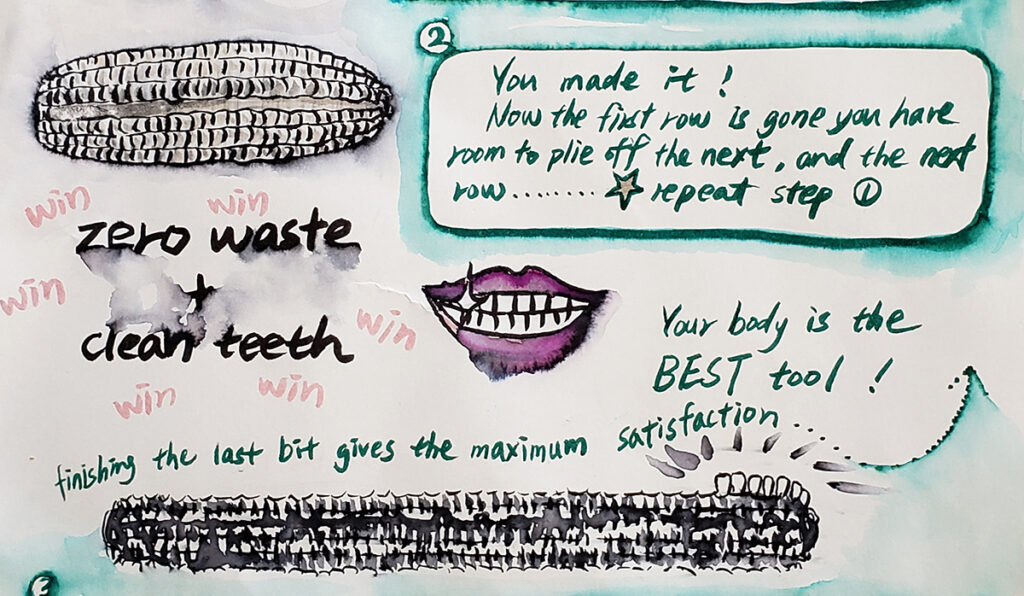 ②
You made it !
Now the first row is gone you have
room to plie off the next, and the next
row........ ☆ repeat step ①
win win
zero waste
+
clean teeth
win win
win win
Your body is the
BEST tool !
finishing the last bit gives the maximum satisfaction...